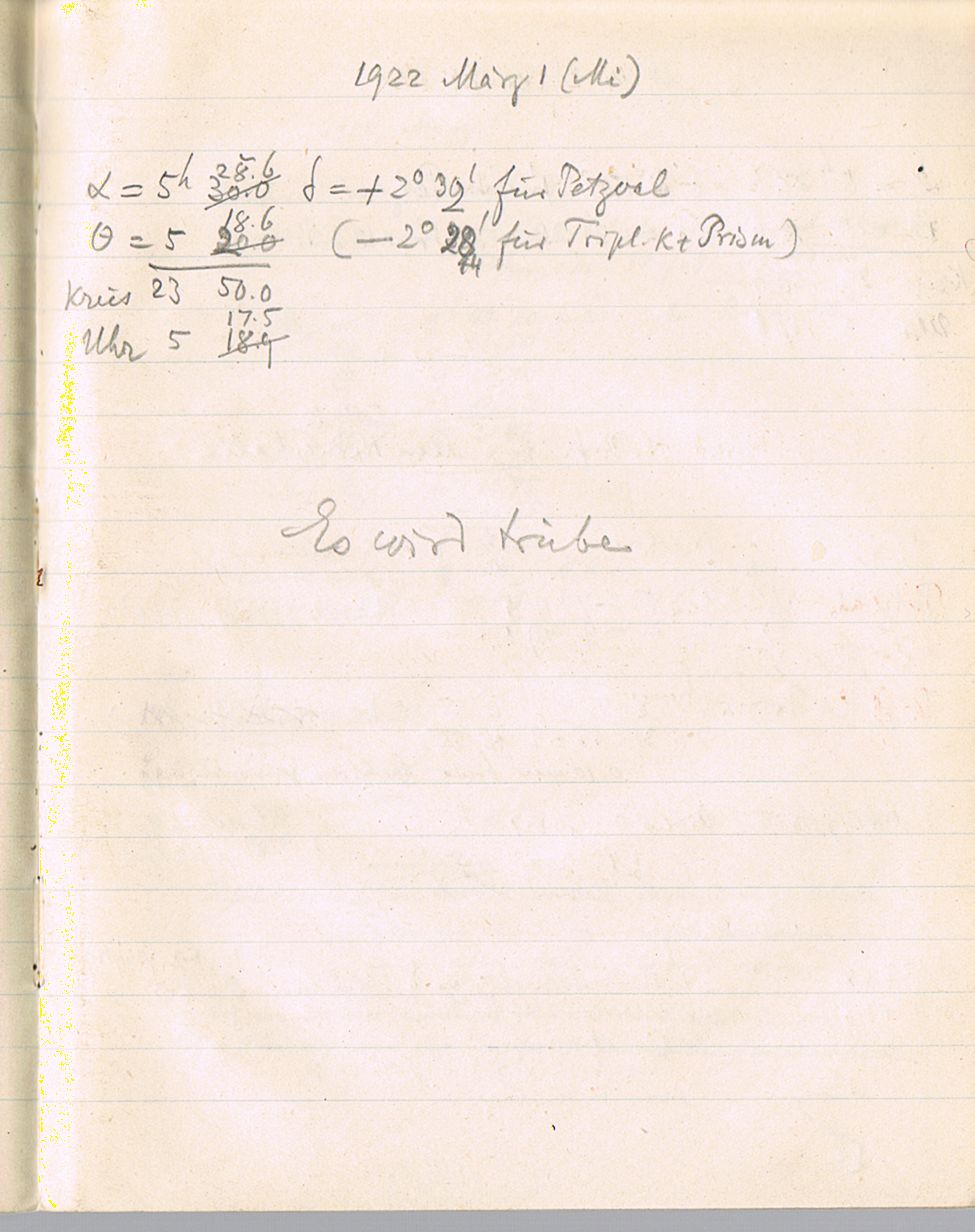 1922 März 1 (Mi)
28.6
α = 5h 30.0 δ = +2° 39' für Petzval
18.6
θ = 5 20.0 (−2° 28' für Tripl. K + Prism)
14
Kreis 23 50.0
17.5
Uhr 5 18.9
Es wird trübe